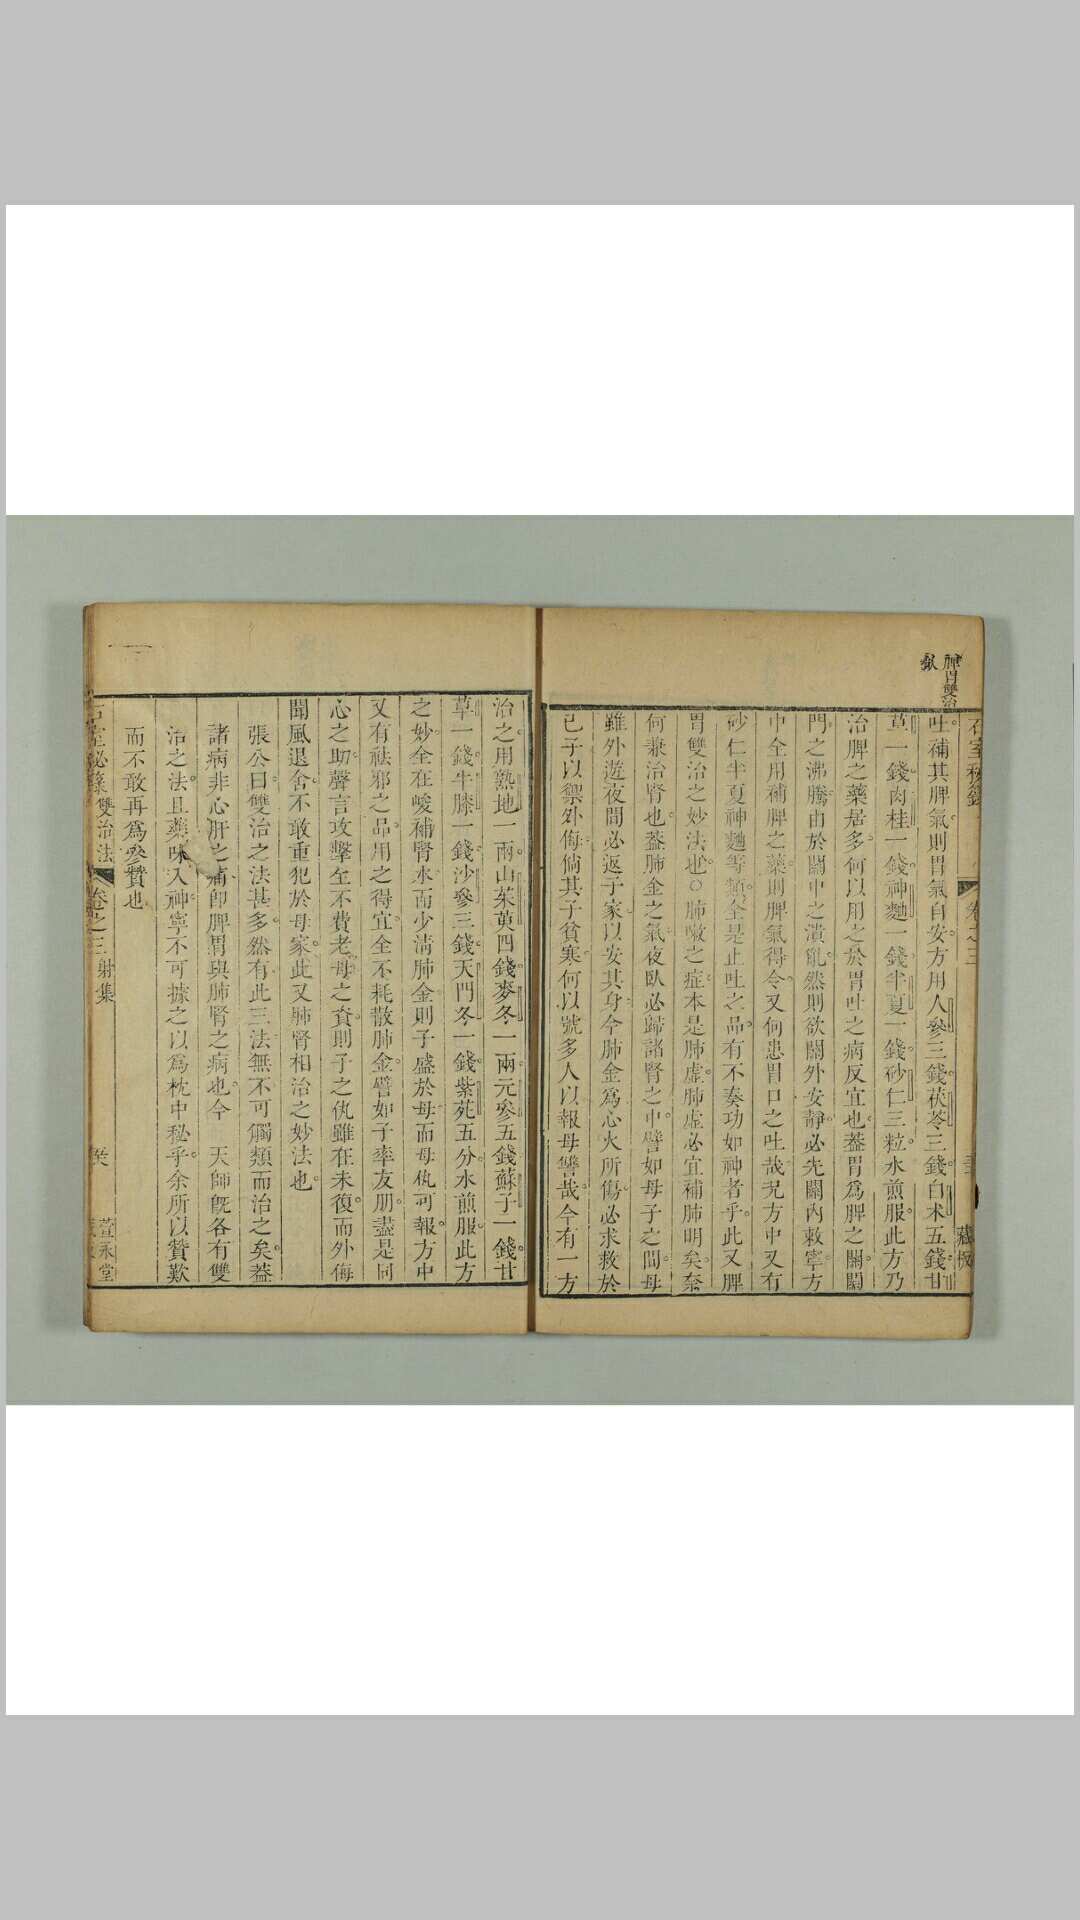 脾胃雙治
吐補其脾氣則胃氣自安方用人參三錢茯苓三錢白朮五錢甘
草一錢肉桂一錢神麯一錢半夏一錢砂仁三粒水煎服此方乃
治脾之藥居多何以用之於胃吐之病反宜也葢胃為脾之關關
門之沸騰由於關中之潰亂然則欲關外安靜必先關內敉寧方
中全用補脾之藥則脾氣得令又何患胃口之吐哉况方中又有
砂仁半夏神麯等類全是止吐之品有不奏功如神者乎此又脾
胃雙治之妙法也○肺嗽之症本是肺虛肺虛必宜補肺明矣奈
何兼治腎也葢肺金之氣夜臥必歸諸腎之中譬如母子之間母
雖外遊夜間必返子家以安其身今肺金為心火所傷必求救於
己子以禦外侮倘其子貧寒何以號多人以報母讐哉今有一方
治之用熟地一兩山茱萸四錢麥冬一兩元參五錢蘇子一錢甘
草一錢牛膝一錢沙參三錢天門冬一錢紫苑五分水煎服此方
之妙全在峻補腎水而少清肺金則子盛於母而母仇可報方中
又有祛邪之品用之得宜全不耗散肺金譬如子率友朋盡是同
心之助聲言攻擊全不費老母之資則子之仇雖在未復而外侮
聞風退舍不敢重犯於母家此又肺腎相治之妙法也
張公曰雙治之法甚多然有此三法無不可觸類而治之矣葢
諸病非心肝之痛卽脾胃與肺腎之病也今 天師旣各有雙
治之法且藥味入神寧不可據之以為枕中秘乎余所以贊歎
而不敢再為參贊也
石室秘籙 雙治法 卷之三 射集 萱永堂